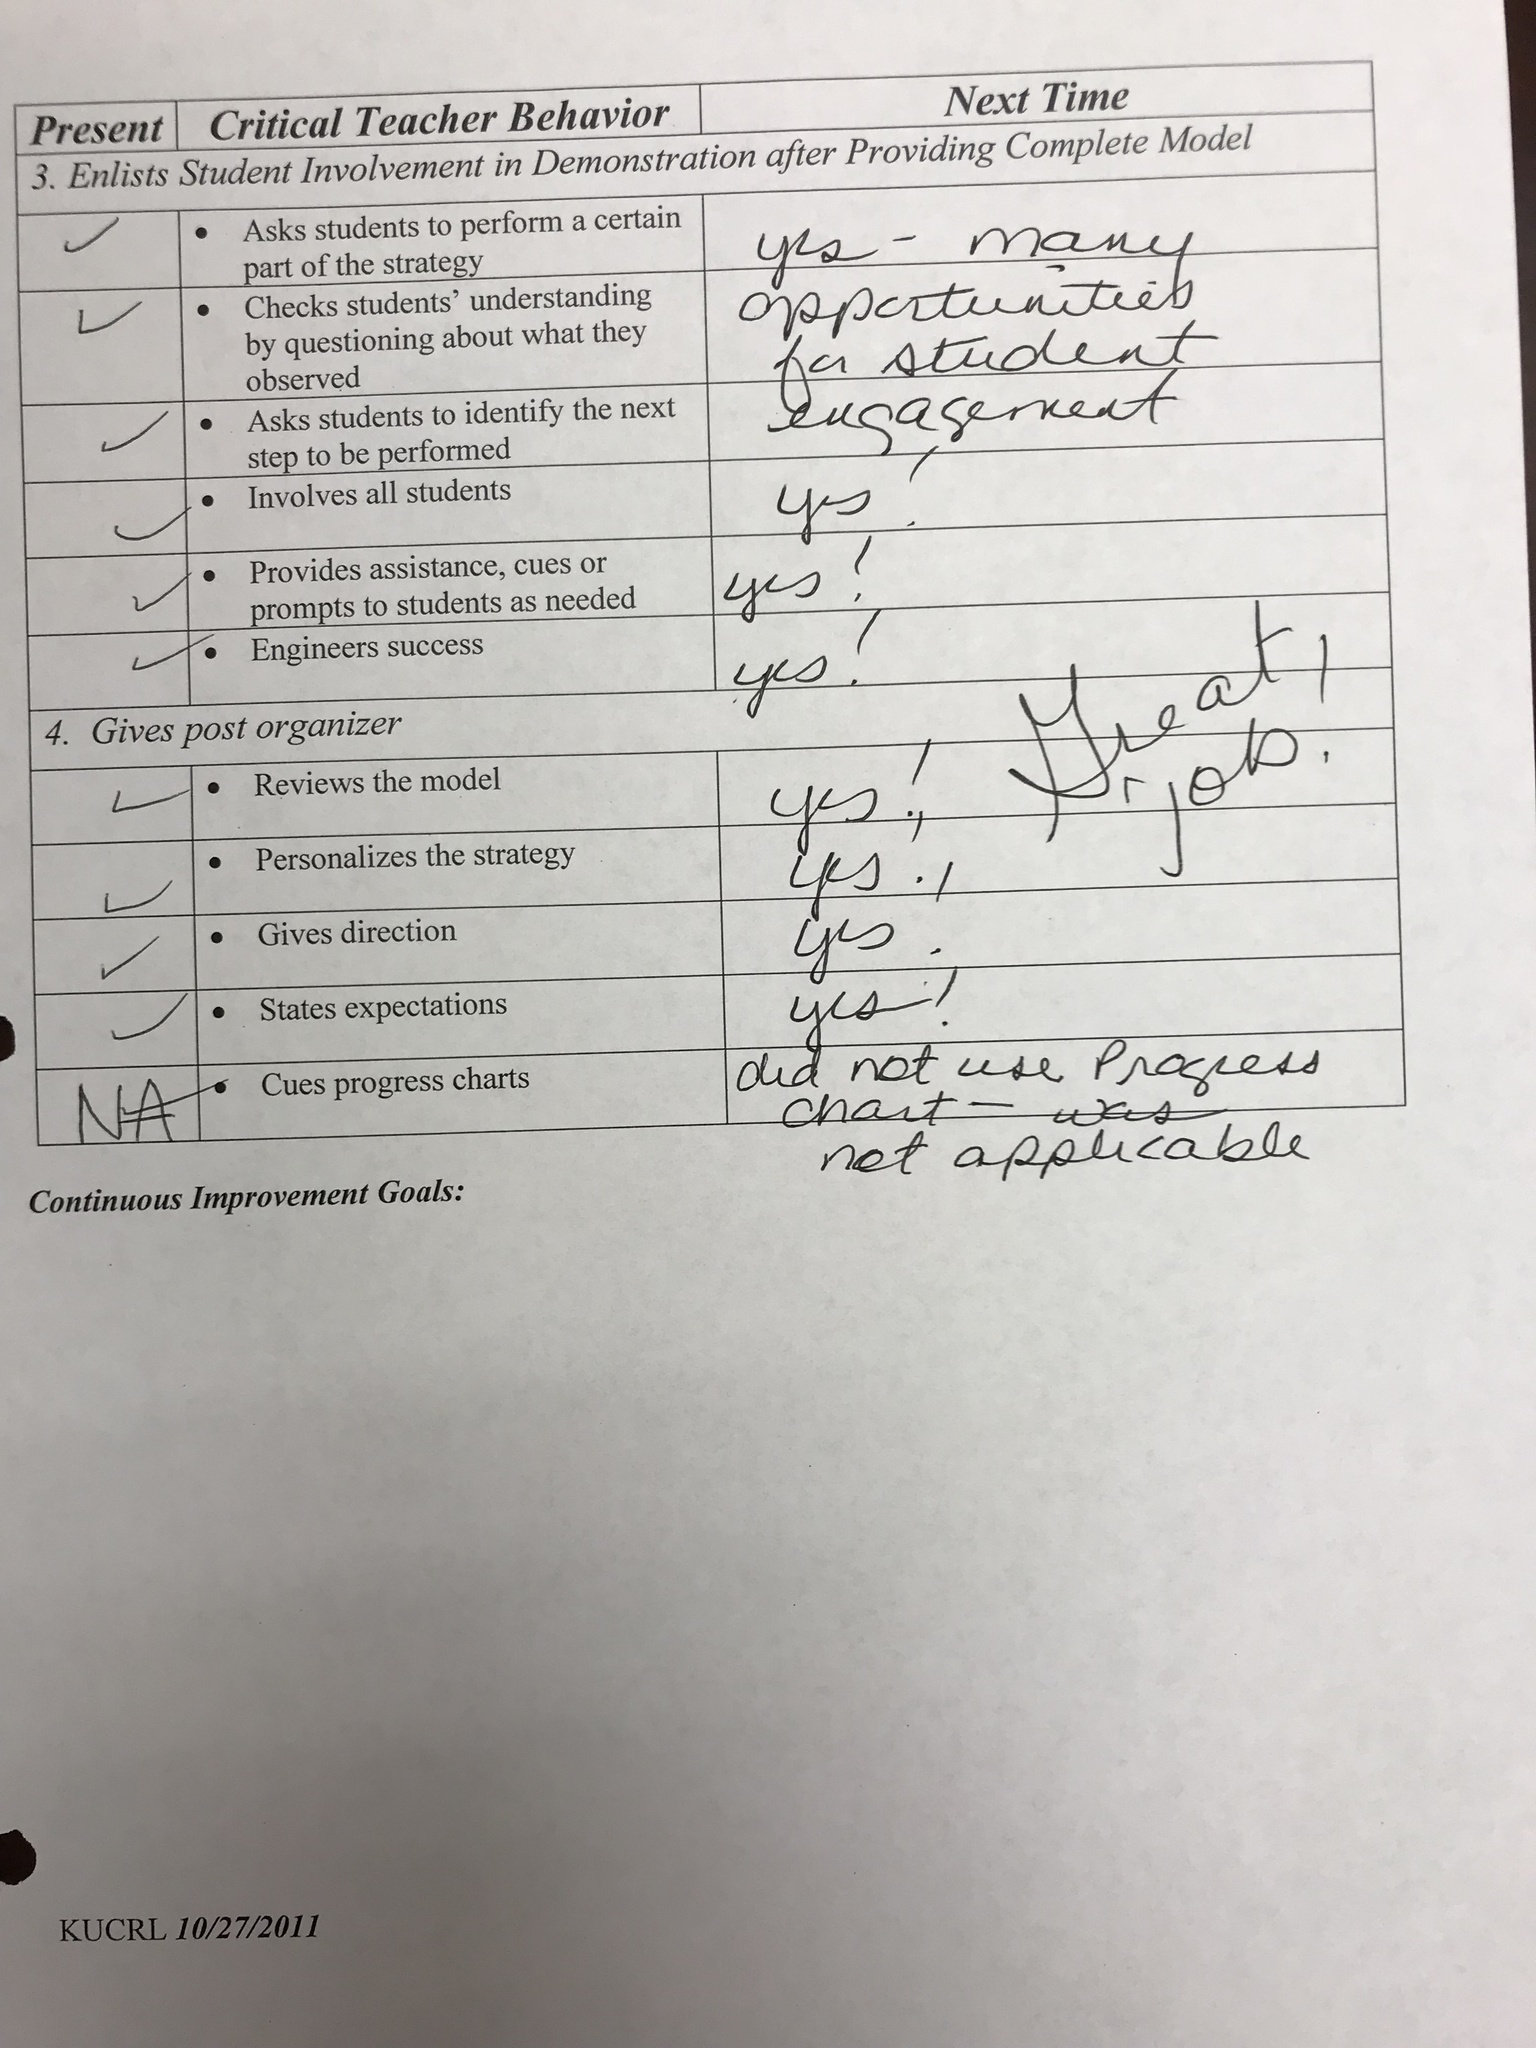 Present Critical Teacher Behavior Next Time
3. Enlists Student Involvement in Demonstration after Providing Complete Model
• Asks students to perform a certain
part of the strategy
yes - many
• Checks students' understanding
by questioning about what they
observed
opportunities
for student
• Asks students to identify the next
step to be performed
engagement
• Involves all students
yes!
• Provides assistance, cues or
prompts to students as needed
yes!
• Engineers success
yes!
4. Gives post organizer
Great
job!
• Reviews the model
yes!
• Personalizes the strategy
yes!
• Gives direction
yes.
• States expectations
yes!
NA • Cues progress charts
did not use Progress
chart - was
not applicable
Continuous Improvement Goals:
KUCRL 10/27/2011